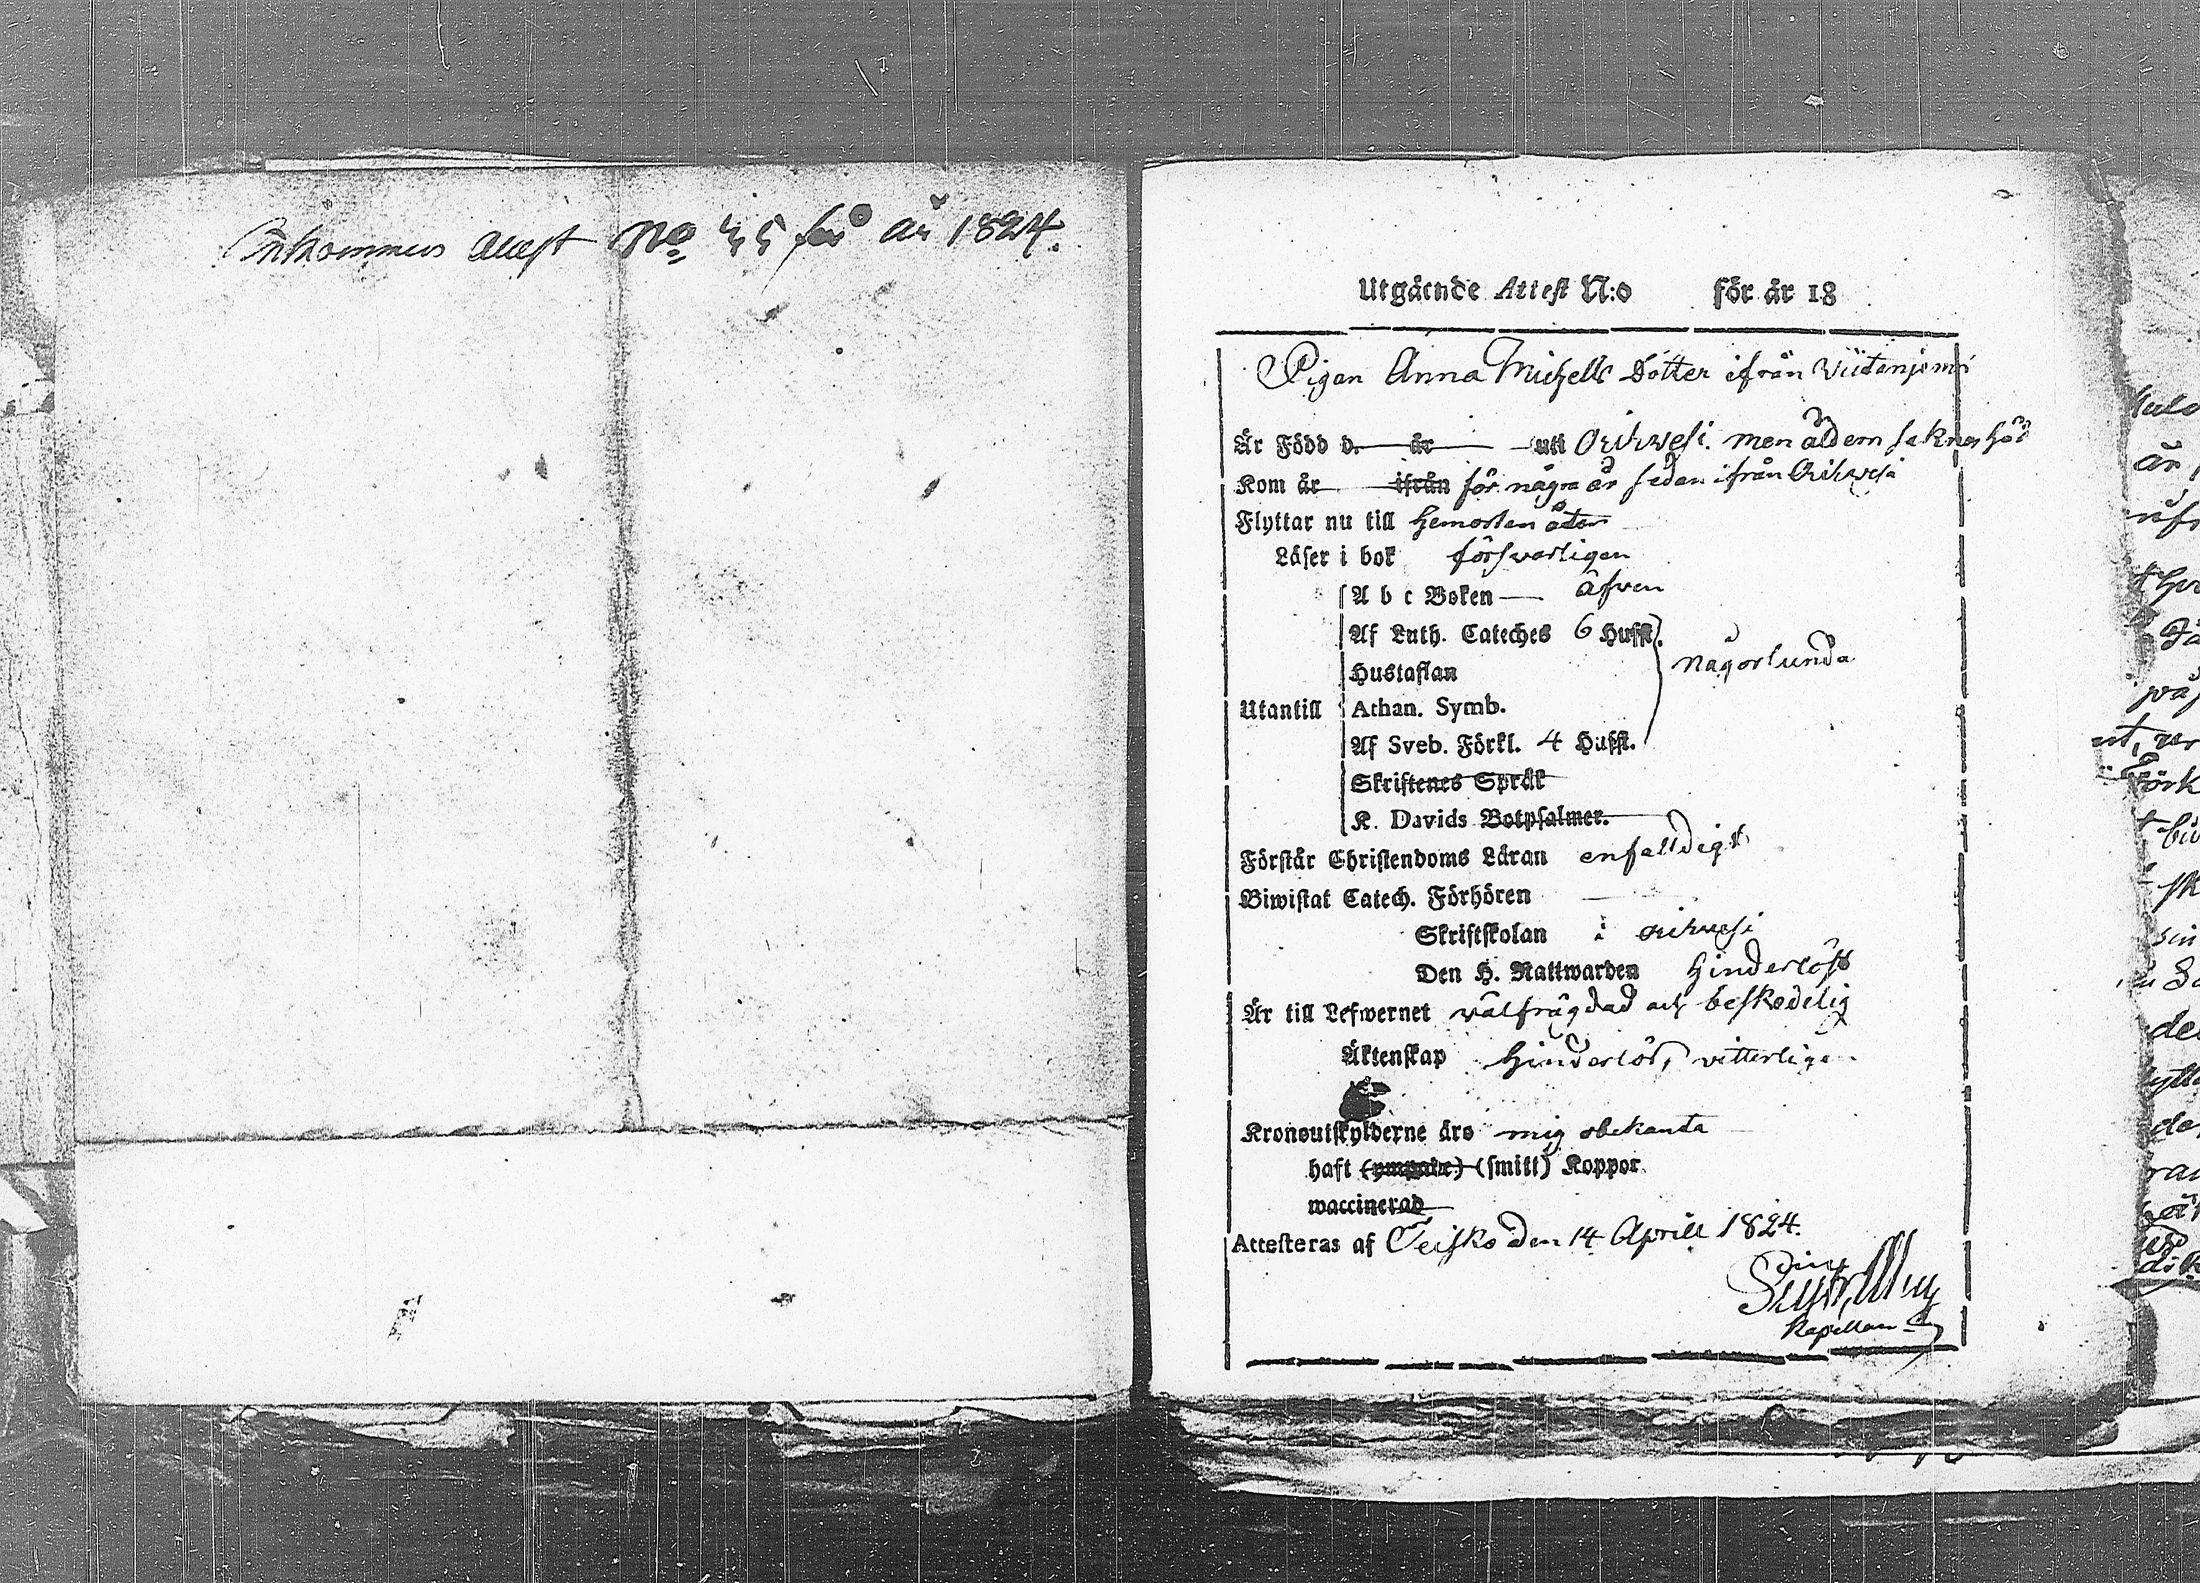 Inkommen Attest No 35 för år 1824.
Utgående Attest N:o för år 18
Pigan Anna Michells Dotter ifrån Viitaniemi
Är Född d. år uti Orihvesi. men åldern saknas hos
Kom år ifrån för några år sedan ifrån Orihvesi
Flyttar nu till hemorten åter
Läser i bok försvarligen
A b c Boken äfven
Af Luth. Cateches 6 Hufst.
någorlunda
Hustaflan
Utantill Athan. Symb.
Af Sveb. Förkl. 4 Hufst.
Skriftenes Språk
K. Davids Botpsalmer.
Förstår Christendoms Läran enfalldigt
Biwistat Catech. Förhören
Skriftskolan i Orihvesi
Den H. Nattwarden hinderlöst
Är till Lefwernet välfrägdad och beskedelig
Äktenskap hinderlös, vitterligen
Kronoutskylderne äro mig obekanta
haft (ympade) (smitt) Koppor
waccinerad
Attesteras af Teisko den 14 Aprill 1824.
Kapellan